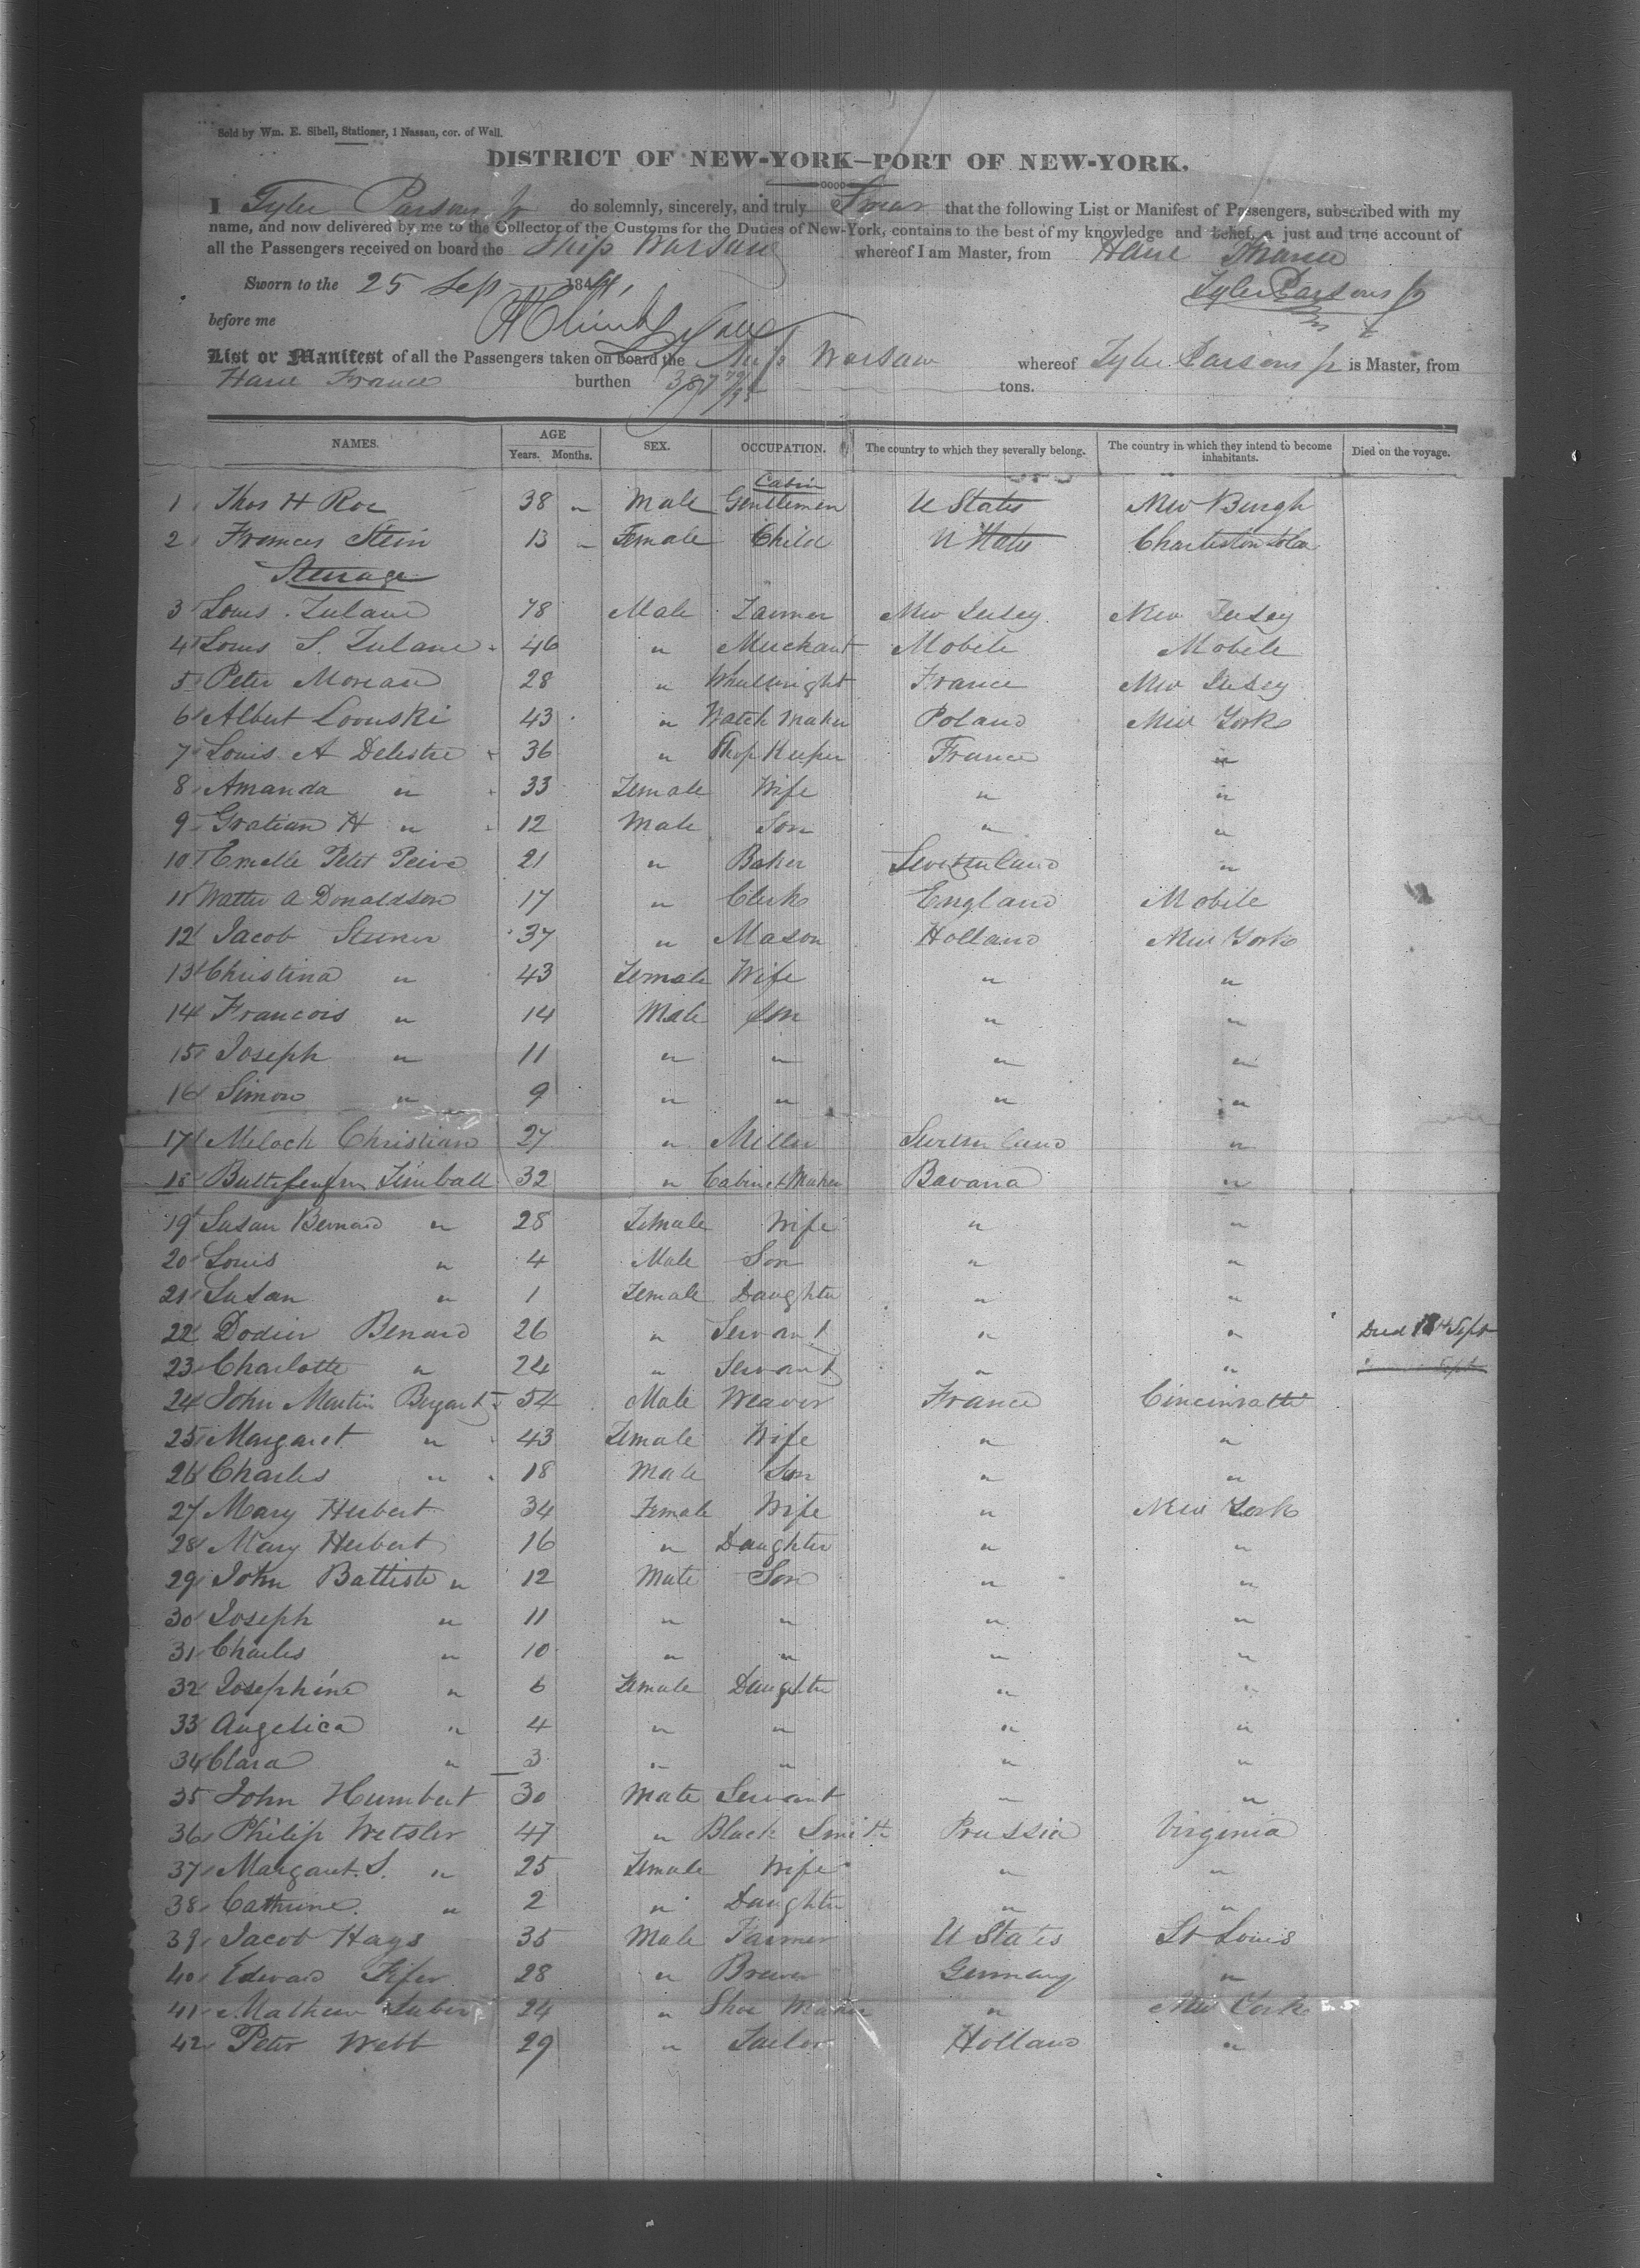 Sold by Wm. E. Sibell, Stationer, 1 Nassau, cor. of Wall.
DISTRICT OF NEW-YORK—PORT OF NEW-YORK.
I Tyler Parsons Jr do solemnly, sincerely, and truly Swear that the following List or Manifest of Passengers, subscribed with my
name, and now delivered by me to the Collector of the Customs for the Duties of New-York, contains to the best of my knowledge and belief, a just and true account of
all the Passengers received on board the Ship Warsaw whereof I am Master, from Havre France
Sworn to the 25 Sep 1844, Tyler Parsons Jr
before me
List or Manifest of all the Passengers taken on board the Ship Warsaw whereof Tyler Parsons Jr is Master, from
Havre France burthen 387 tons.
NAMES. AGE Years. Months. SEX. OCCUPATION. The country to which they severally belong. The country in which they intend to become inhabitants. Died on the voyage.
Cabin
1 Thos H Roe 38 " Male Gentlemen U States New Burgh
2 Frances Stein 13 " Female Child U States Charleston
Steerage
3 Louis Tulane 78 Male Farmer New Jersey New Jersey
4 Louis S. Tulane 46 " Merchant Mobile Mobile
5 Peter Moreau 28 " Wheelwright France New Jersey
6 Albert Loonski 43 " Watch Maker Poland New York
7 Louis A Delestre 36 " Shop Keeper France "
8 Amanda " 33 Female Wife " "
9 Gratian H " 12 Male Son " "
10 Emelle Petit Peire 21 " Baker Switzerland "
11 Walter A Donaldson 17 " Clerk England Mobile
12 Jacob Steiner 37 " Mason Holland New York
13 Christina " 43 Female Wife " "
14 Francois " 14 Male Son " "
15 Joseph " 11 " " " "
16 Simon " 9 " " " "
17 Meloch Christian 27 " Miller Switzerland "
18 Kimball 32 " Cabinet Maker Bavaria "
19 Susan Bernard " 28 Female Wife " "
20 Louis " 4 Male Son " "
21 Susan " 1 Female Daughter " "
22 Dodier Benard 26 " Servant " " Died 18th Sept
23 Charlotte " 24 " Servant " "
24 John Martin Bryant 54 Male Weaver France Cincinnatti
25 Margaret " 43 Female Wife " "
26 Charles " 18 Male Son " "
27 Mary Herbert 34 Female Wife " New York
28 Mary Herbert 16 " Daughter " "
29 John Battiste " 12 Male Son " "
30 Joseph " 11 " " " "
31 Charles " 10 " " " "
32 Josephine " 6 Female Daughter " "
33 Angelica " 4 " " " "
34 Clara " 3 " " " "
35 John Humbert 30 Male Servant " "
36 Philip Wetsler 47 " Black Smith Prussia Virginia
37 Margaret S. " 25 Female Wife " "
38 Cathrine " 2 " Daughter " "
39 Jacob Hays 35 Male Farmer U States St Louis
40 Edward Fifer 28 " Brewer Germany "
41 Mathew Luber 24 " Shoe Maker " New York
42 Peter Webb 29 " Tailor Holland "